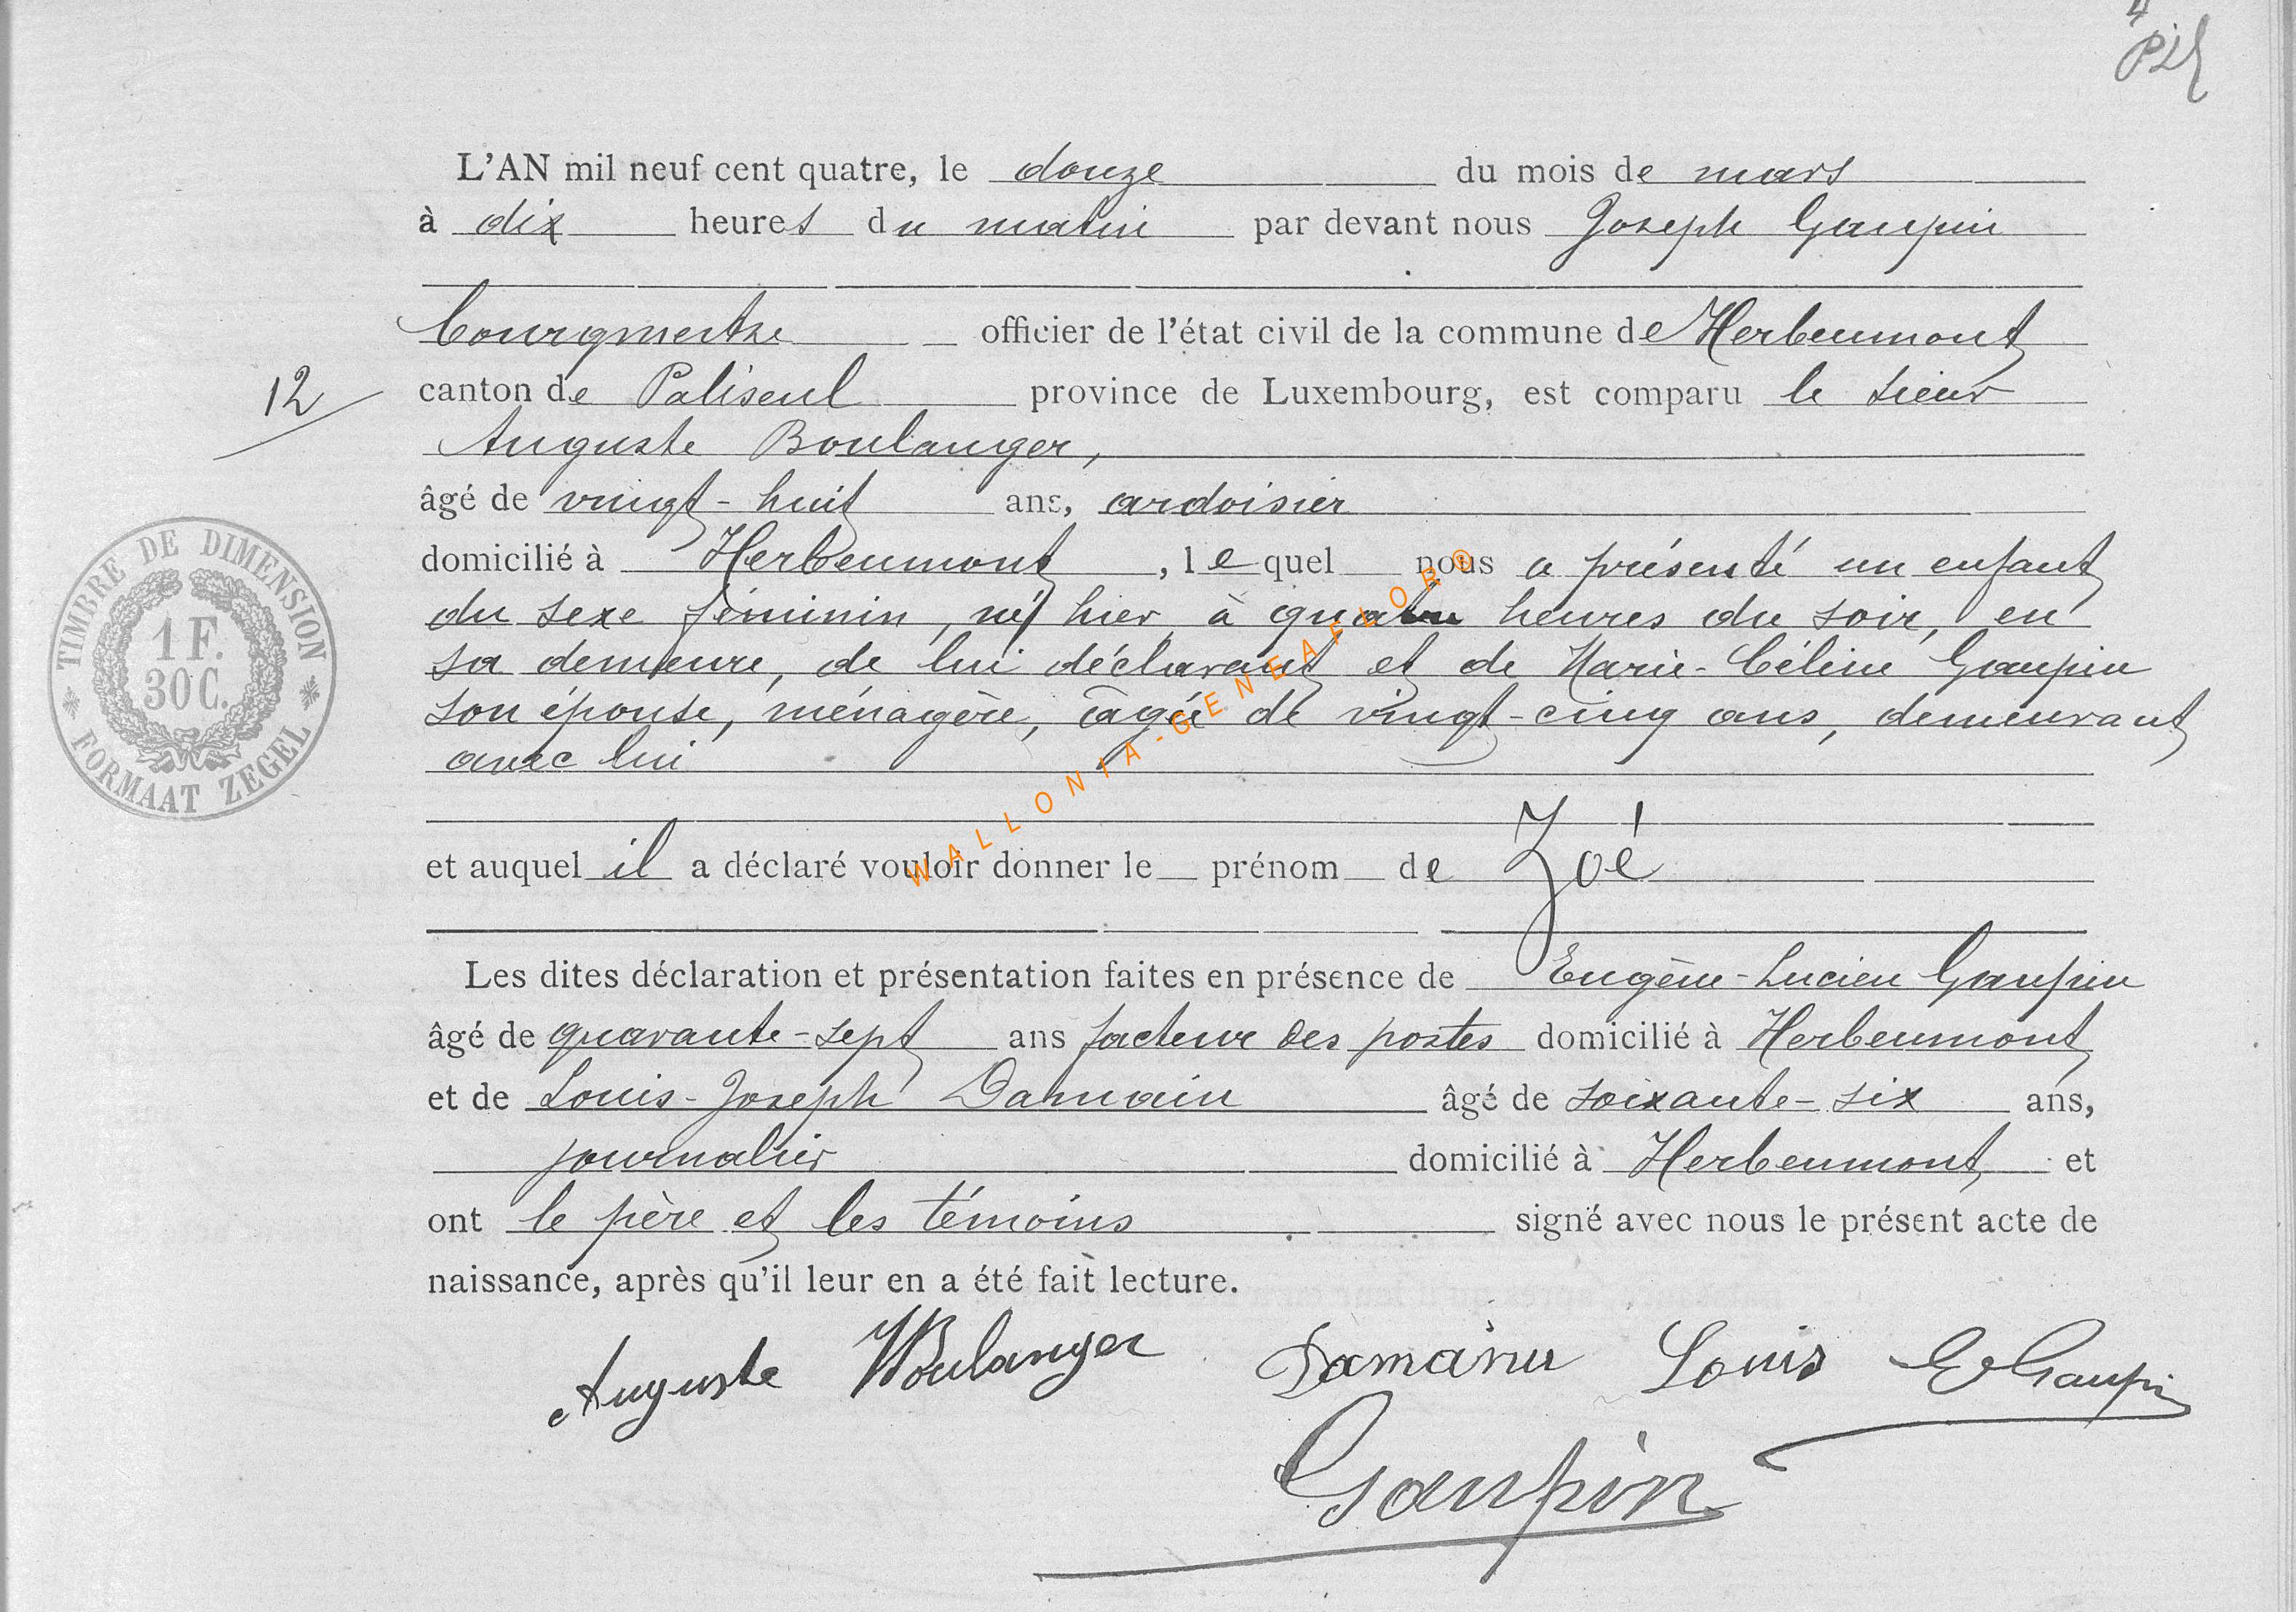 4
L'AN mil neuf cent quatre, le douze du mois de mars
à dix heures du matin par devant nous Joseph Gaupin
bourgmestre officier de l'état civil de la commune de Herbeumont
12
canton de Paliseul province de Luxembourg, est comparu le sieur
Auguste Boulanger,
âgé de vingt-huit ans, ardoisier
domicilié à Herbeumont, lequel nous a présenté un enfant
du sexe féminin, né hier, à quatre heures du soir, en
sa demeure, de lui déclarant et de Marie-Céline Gaupin
son épouse, ménagère, âgée de vingt-cinq ans, demeurant
avec lui
et auquel il a déclaré vouloir donner le prénom de Zoé
Les dites déclaration et présentation faites en présence de Eugène-Lucien Gaupin
âgé de quarante-sept ans facteur des postes domicilié à Herbeumont
et de Louis-Joseph Damain âgé de soixante-six ans,
journalier domicilié à Herbeumont et
ont le père et les témoins signé avec nous le présent acte de
naissance, après qu'il leur en a été fait lecture.
Auguste Boulanger Louis E Gaupin
Gaupin
TIMBRE DE DIMENSION
1 F.
30 C.
FORMAAT ZEGEL
WALLONIA-GENEAFLOR©